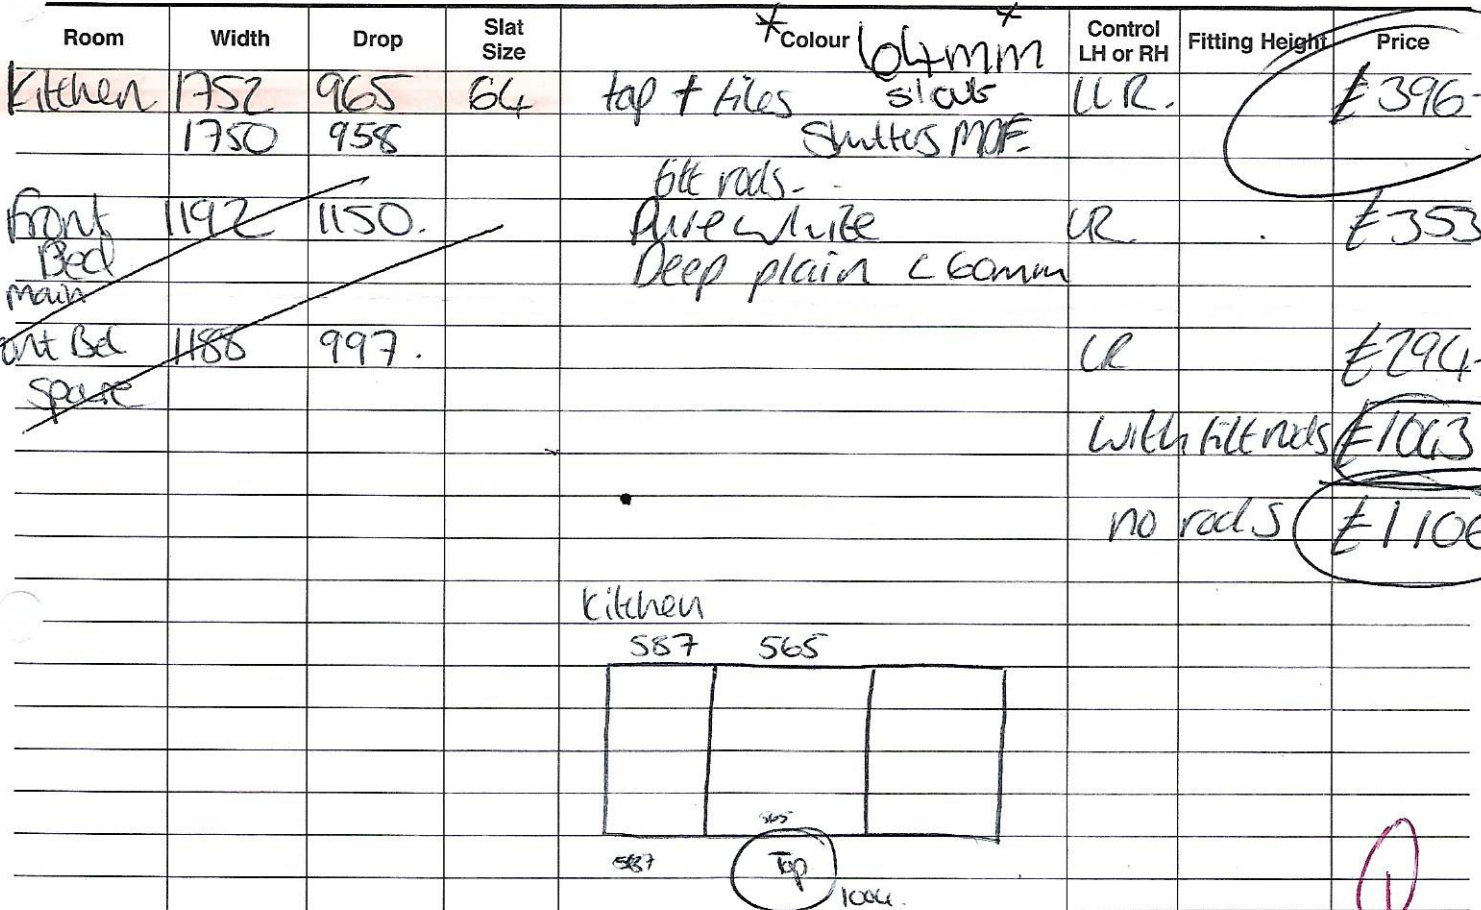 Room Width Drop Slat Size *Colour 64mm * Control LH or RH Fitting Height Price
Kitchen 1752 965 64 top + tiles slats LLR. £396-
1750 958 Shutters MDF.
tilt rods-
Front 1192 1150. Pure white LR £353
Bed Deep plain L 60mm
main
ont Bed 1188 997. LR £294-
Spare
With tilt rods £1043
no rods £1106
Kitchen
587 565
565
587 Top
1004.
1